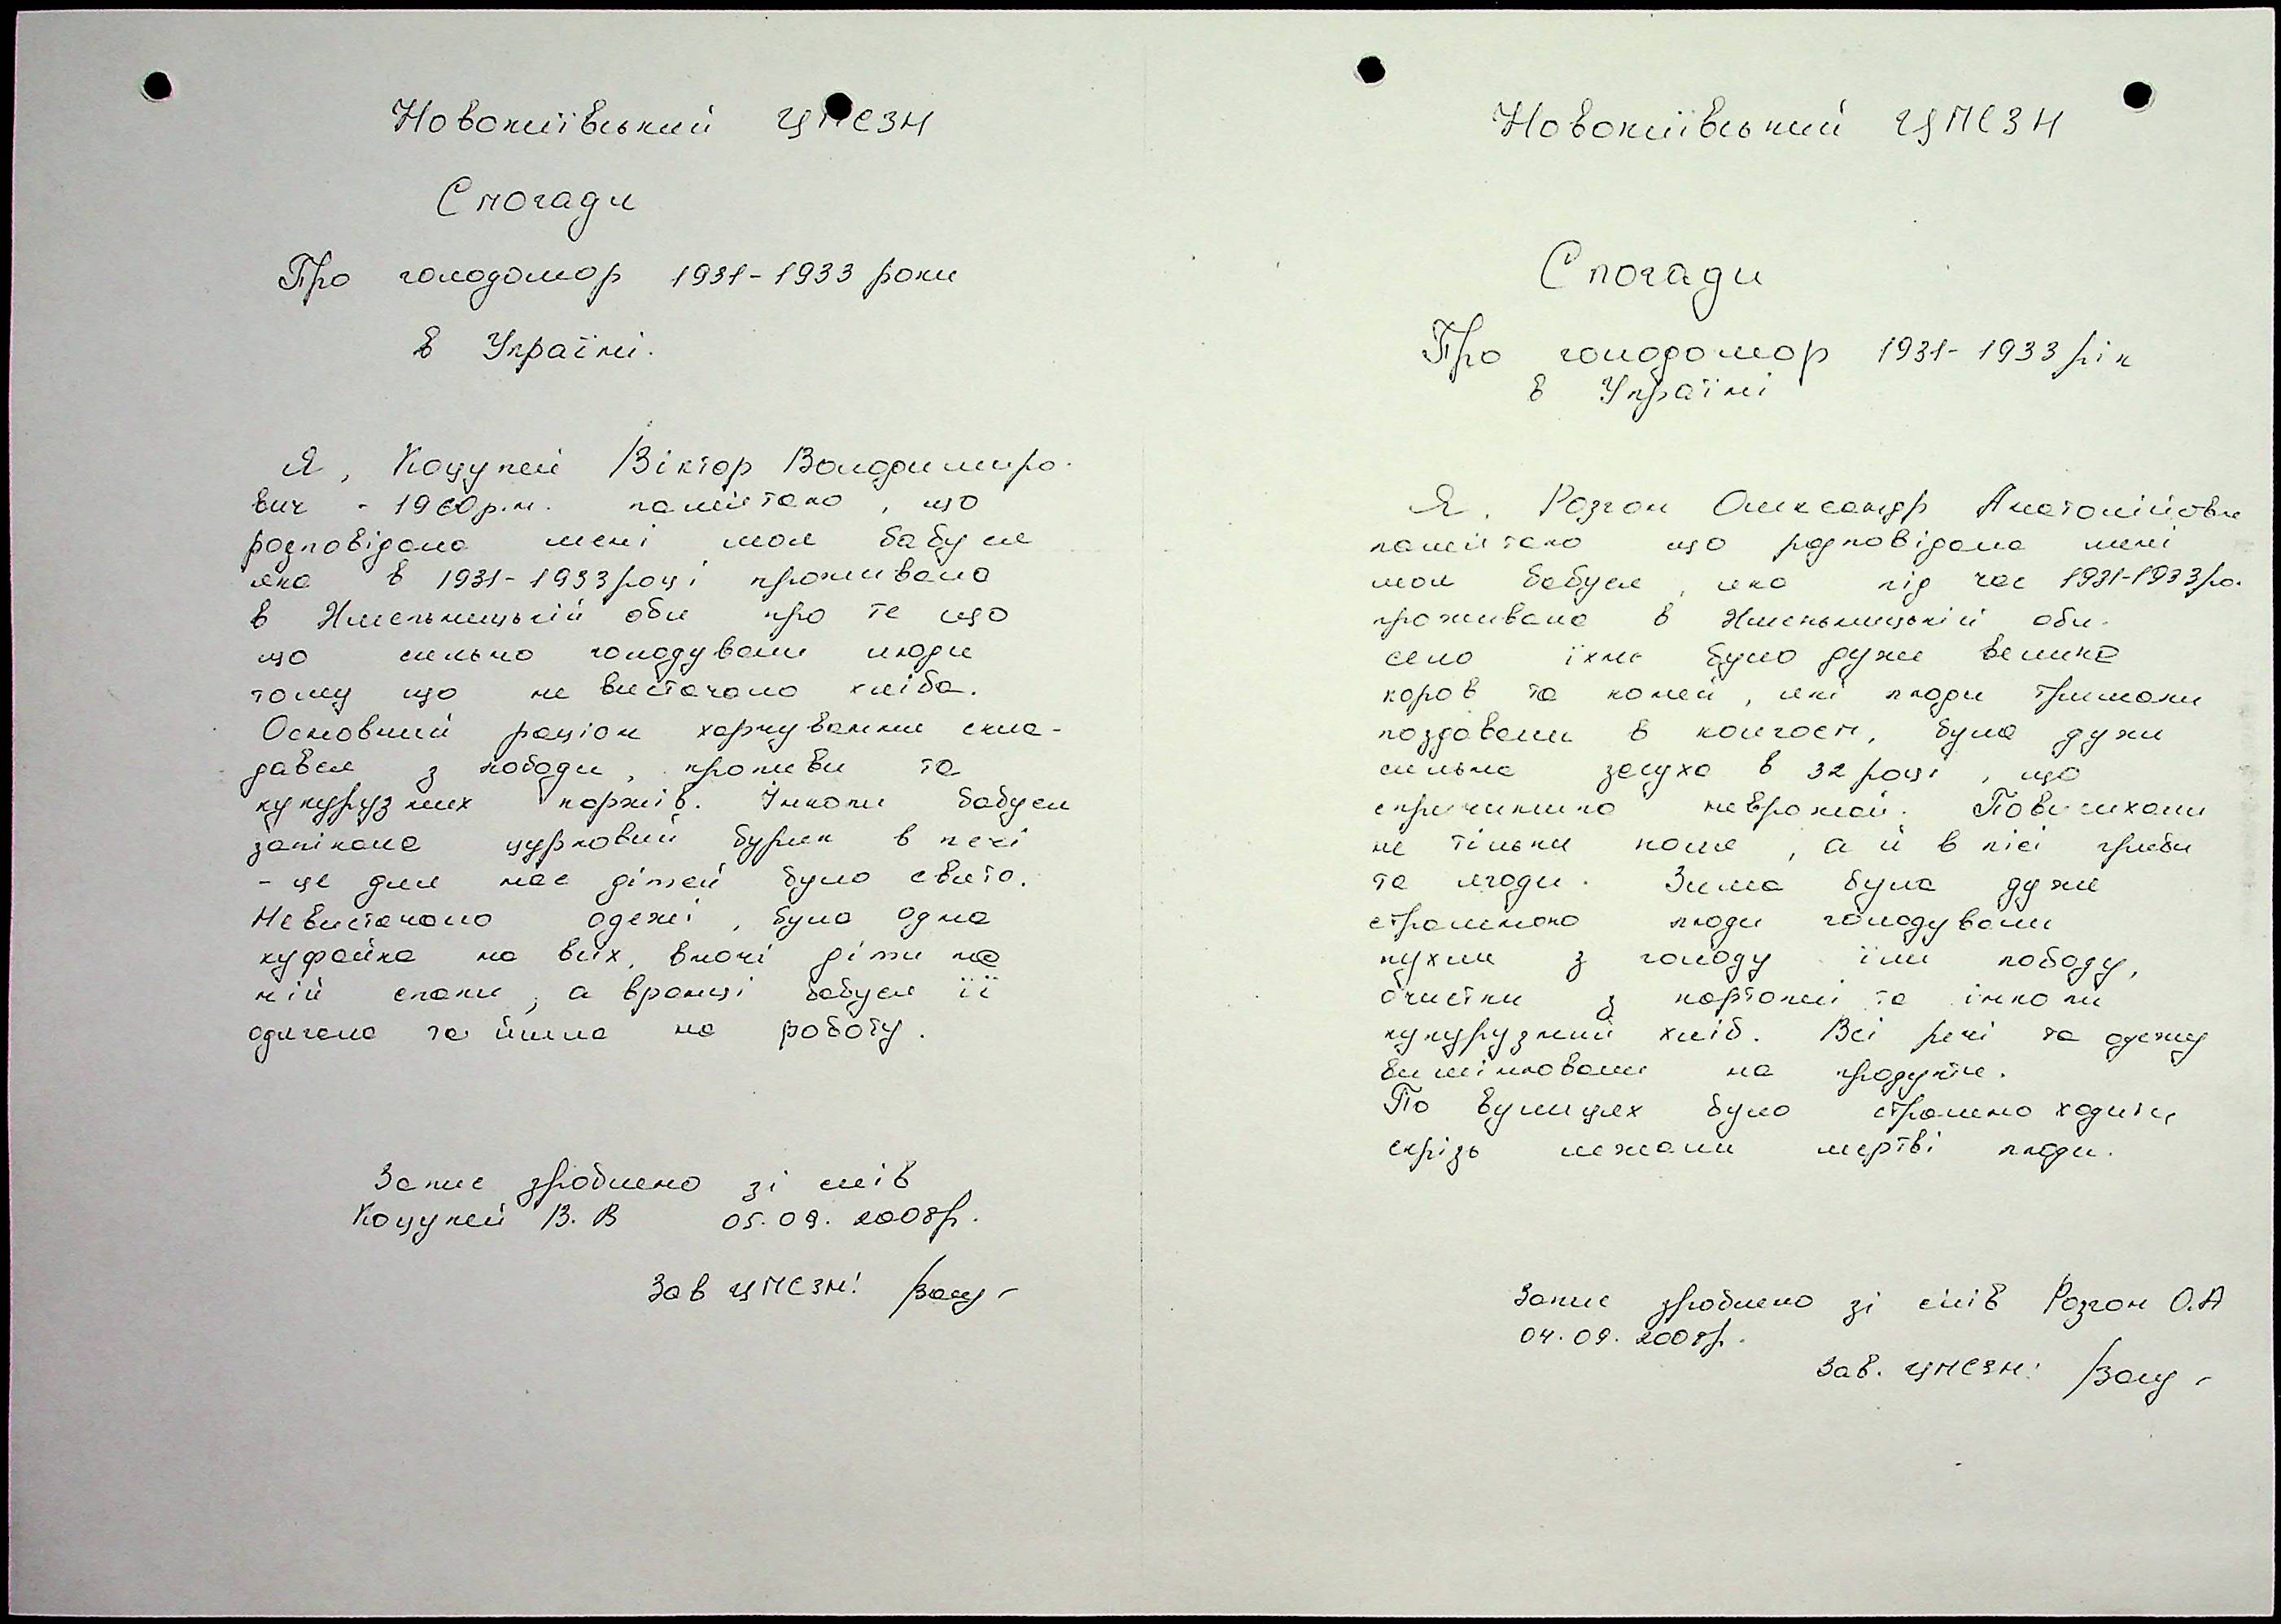 Новокиївський ЦПСЗН
Спогади
Про голодомор 1931-1933 роки
в Україні.
Я, Коцупей Віктор Володимиро-
вич - 1960р.н. памʼятаю, що
розповідала мені моя бабуся
яка в 1931-1933 році проживала
в Хмельницькій обл про те що
що сильно голодували люди
тому що не вистачало хліба.
Основний раціон харчування скла-
дався з лободи, кропиви та
кукурузних коржів. Інколи бабуся
запікала цукровий буряк в печі
- це для нас дітей було свято.
Невистачало одежі, була одна
куфайка на всіх, вночі діти на
ній спали, а вранці бабуся її
одягала та йшла на роботу.
Запис зроблено зі слів
Коцупей В. В 05.09. 2008р.
Зав ЦПСЗН:
Новокиївський ЦПСЗН
Спогади
Про голодомор 1931-1933 рік
в Україні
Я. Розгон Олександр Анатолійови
памʼятаю що розповідала мені
моя бабуся, яка під час 1931-1933 ро.
проживала в Хмельницькій обл.
село їхнє було дуже велике
коров та коней, які люди тримали
поздавали в колгосп, була дуже
сильна засуха в 32 році, що
спричинило неврожай. Повисихали
не тільки поля, а й в лісі гриби
та ягоди. Зима була дуже
страшною люди голодували
пухли з голоду їли лободу,
очистки з картоплі та інколи
кукурузний хліб. Всі речі та одежу
вимінювали на продукти.
По вулицях було страшно ходити,
скрізь лежали мертві люди.
Запис зроблено зі слів Розгон О.А
04.09. 2008р.
Зав. ЦПСЗН: